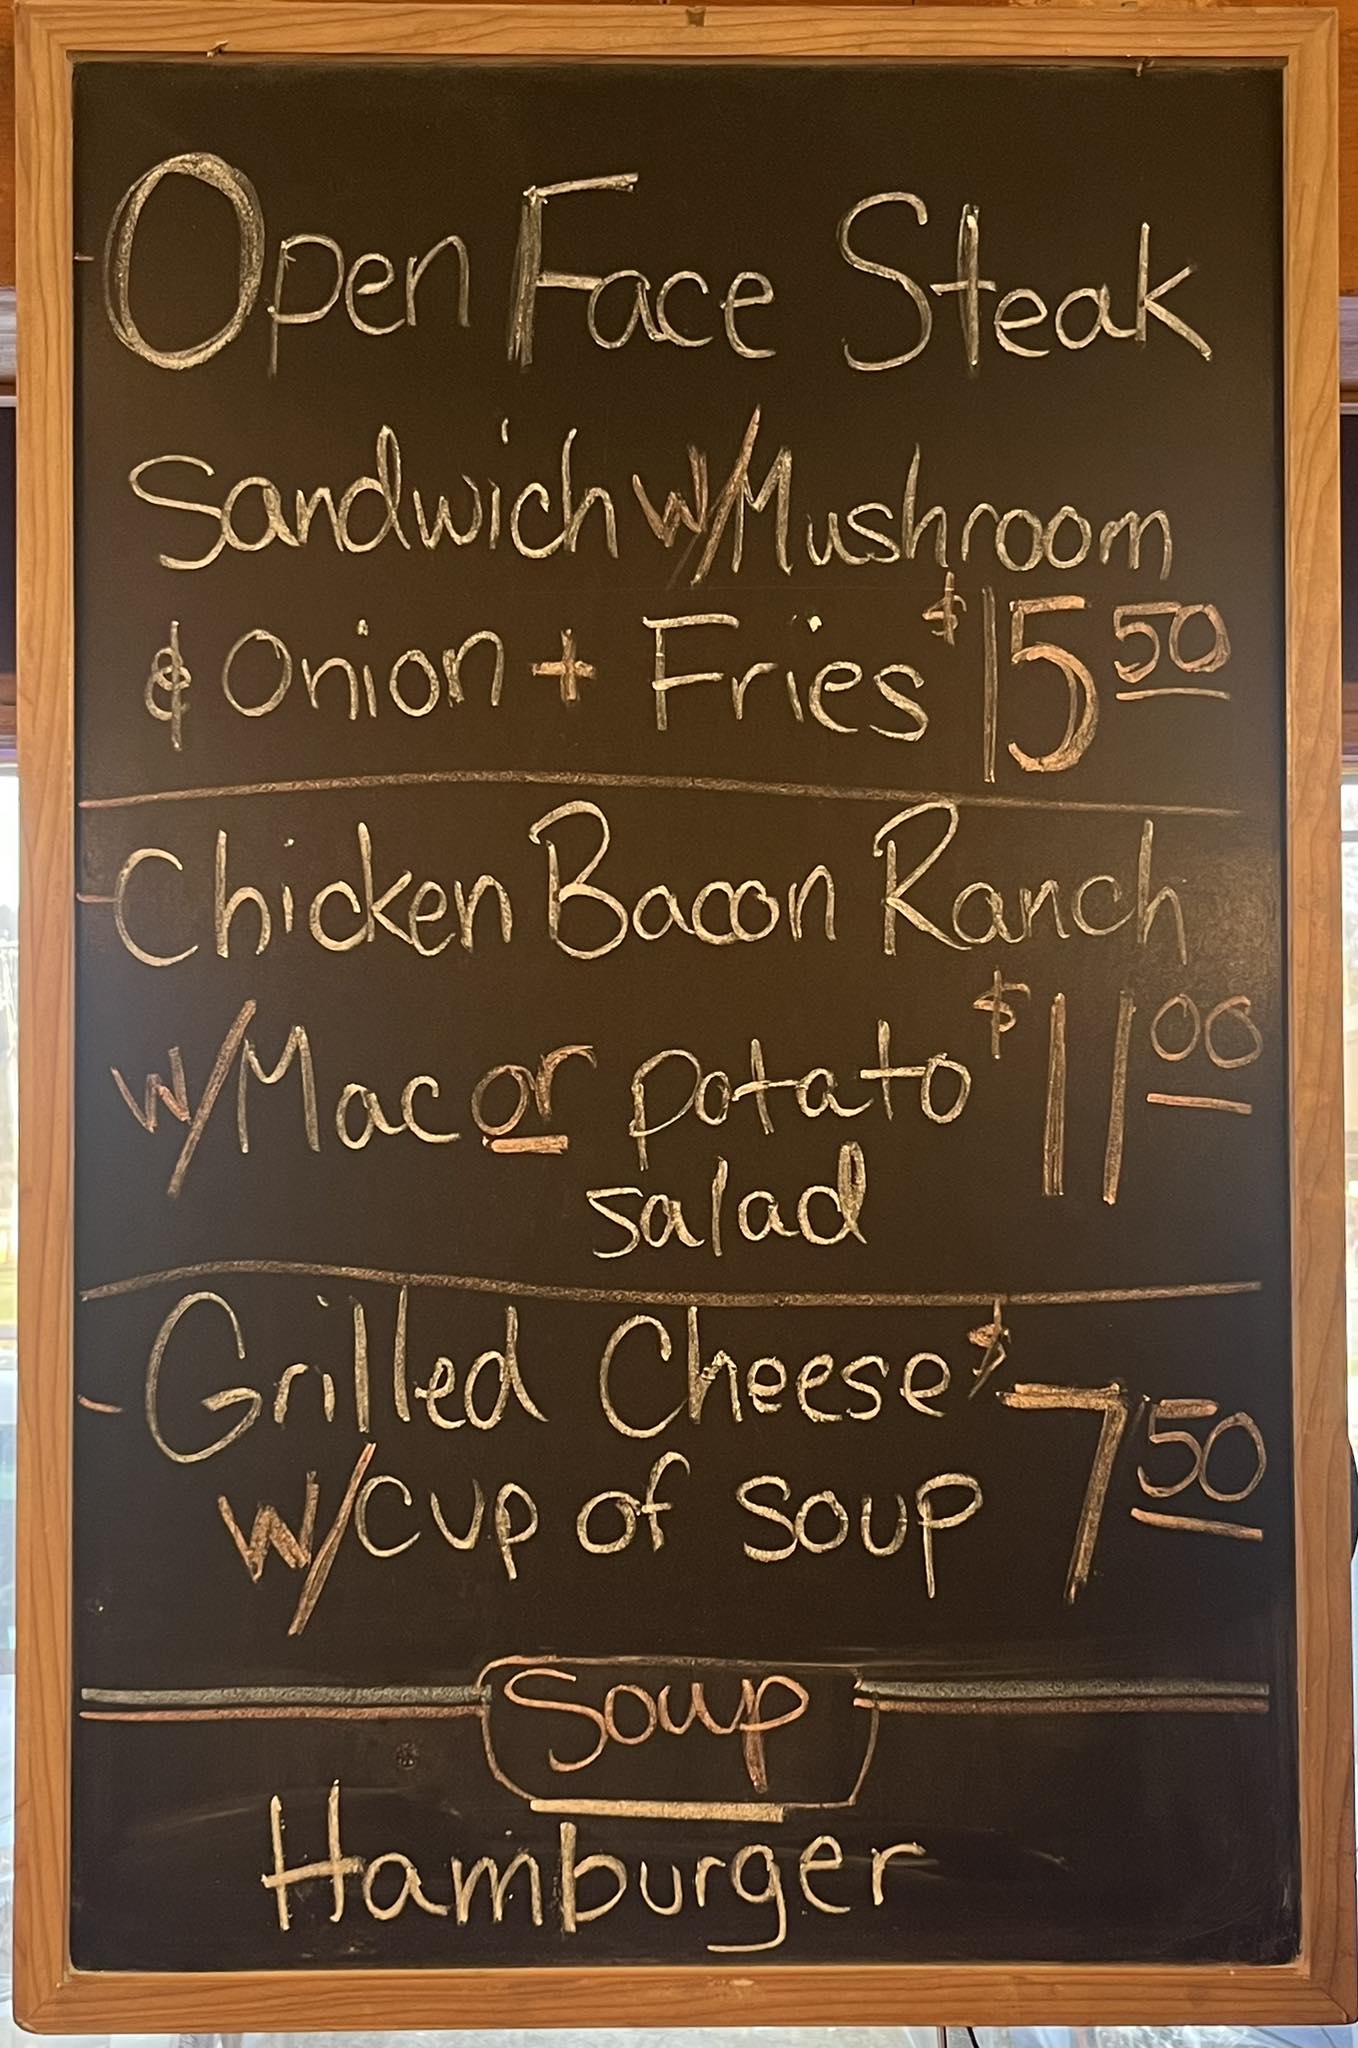 Open Face Steak
Sandwich w/Mushroom
& Onion + Fries $15 50
Chicken Bacon Ranch
w/Mac or potato $11 00
salad
Grilled Cheese $7 50
w/cup of soup
Soup
Hamburger